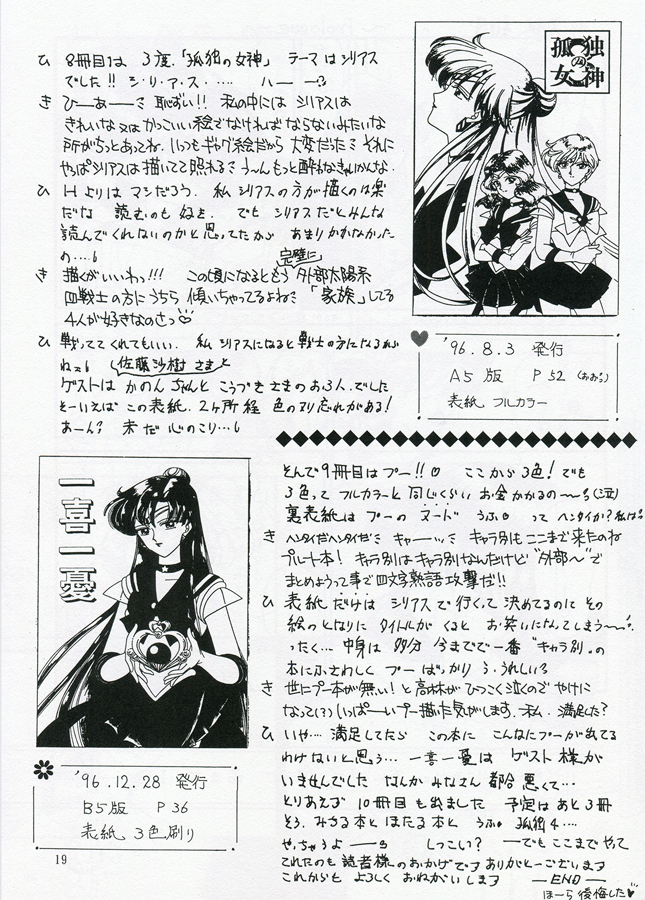 孤独の女神
ひ 8冊目は 3度.「孤独の女神」 テーマはシリアス
でした!! シ・リ・ア・ス・・・・ ハー
き ひーあー 恥ずい!! 私の中には シリアスは
きれいな又はかっこいい絵でなければならないみたいな
所がちっとあってね. いつもギャグ絵だから大変だった それに
やっぱシリアスは描いてて照れる うーんもっと酔わなきゃいかんな.
ひ Hよりはマシだろう. 私シリアスの方が描くのは楽
だな 読むのも好き. でも シリアスだとみんな
読んでくれないのかと思ってたから あまりかかなかった
の・・・・
き 描くがいいわっ!!! この頃になるともう完璧に外部太陽系
四戦士の方にうちら 傾いちゃってるよね 「家族」してる
4人が好きなのさっ♡
ひ 戦っててくれてもいい. 私シリアスになると戦士の方になるから
ね (佐藤沙樹さまと
ゲストは かのんちゃんと こうづきさまのお3人.でした
そーいえば この表紙. 2ヶ所程 色のヌリ忘れがある!
あーん? 未だ心のこり…
'96.8.3 発行
A5版 P52 (おおっ)
表紙 フルカラー
一喜一憂
'96.12.28 発行
B5版 P36
表紙 3色刷り
そんで9冊目はプー!!♡ ここから3色! でも
3色って フルカラーと同じくらい お金かかるの〜(泣)
裏表紙はプーの ヌード うふ って ヘンタイか? 私は
き ヘンタイだヘンタイだ キャー キャラ別もここまで来たのね
プルート本! キャラ別はキャラ別なんだけど“外部〜”で
まとめようって事で四文字熟語攻撃だ!!
ひ 表紙だけは シリアスで行くって 決めてるのに その
絵のとなりに タイトルがくると お笑いになってしまう〜
ったく… 中身は 多分 今までで一番“キャラ別”の
本にふさわしく プーばっかり う・うれしい
き 世にプー本が無い! と高林がひつこく泣くので やけに
なって(?)いっぱーいプー描いた気がします. 私. 満足した?
ひ いや… 満足してたら この本に こんなにプーが出てる
わけないと思う… 一喜一憂は ゲスト様が
いませんでした なんかみなさん 都合悪くて…
とりあえず 10冊目も出ました 予定はあと3冊
そう. みちる本とほたる本と うふ 孤独4…
やっちゃうよー しつこい? ーでもここまでやって
これたのも読者様のおかげです ありがとーございます
これからも よろしく おねがいします ―END―
ほーら後悔した♡
19